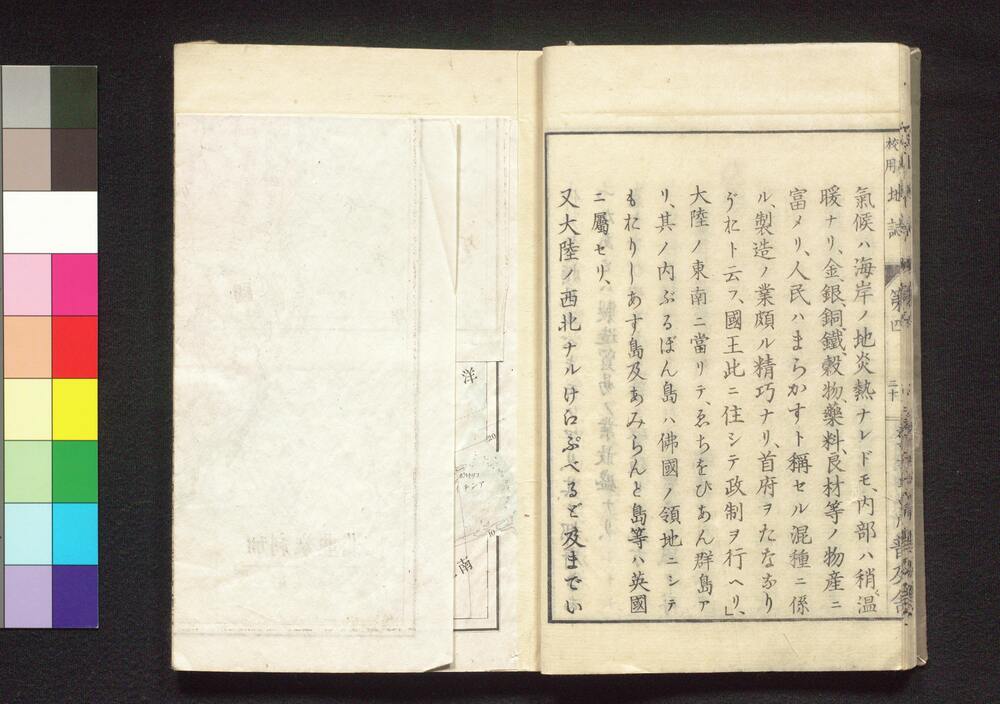 氣候ハ海岸ノ地炎熱ナレドモ、内部ハ稍温
暖ナリ、金、銀、銅、鐵、穀物、藥料、良材等ノ物産ニ
富メリ、人民ハまらかすト稱セル混種ニ係
ル、製造ノ業頗ル精巧ナリ、首府ヲたななり
ゔおト云フ、國王此ニ住シテ政制ヲ行ヘリ、」
大陸ノ東南ニ當リテ、ゑちをぴあん群島ア
リ、其ノ内ぶるぼん島ハ佛國ノ領地ニシテ
もおりしあす島及あみらんと島等ハ英國
ニ屬セリ、
又大陸ノ西北ナルけいぷべるど及までい
校用
地誌
第四
二十
普及舍
洋
20
10
南